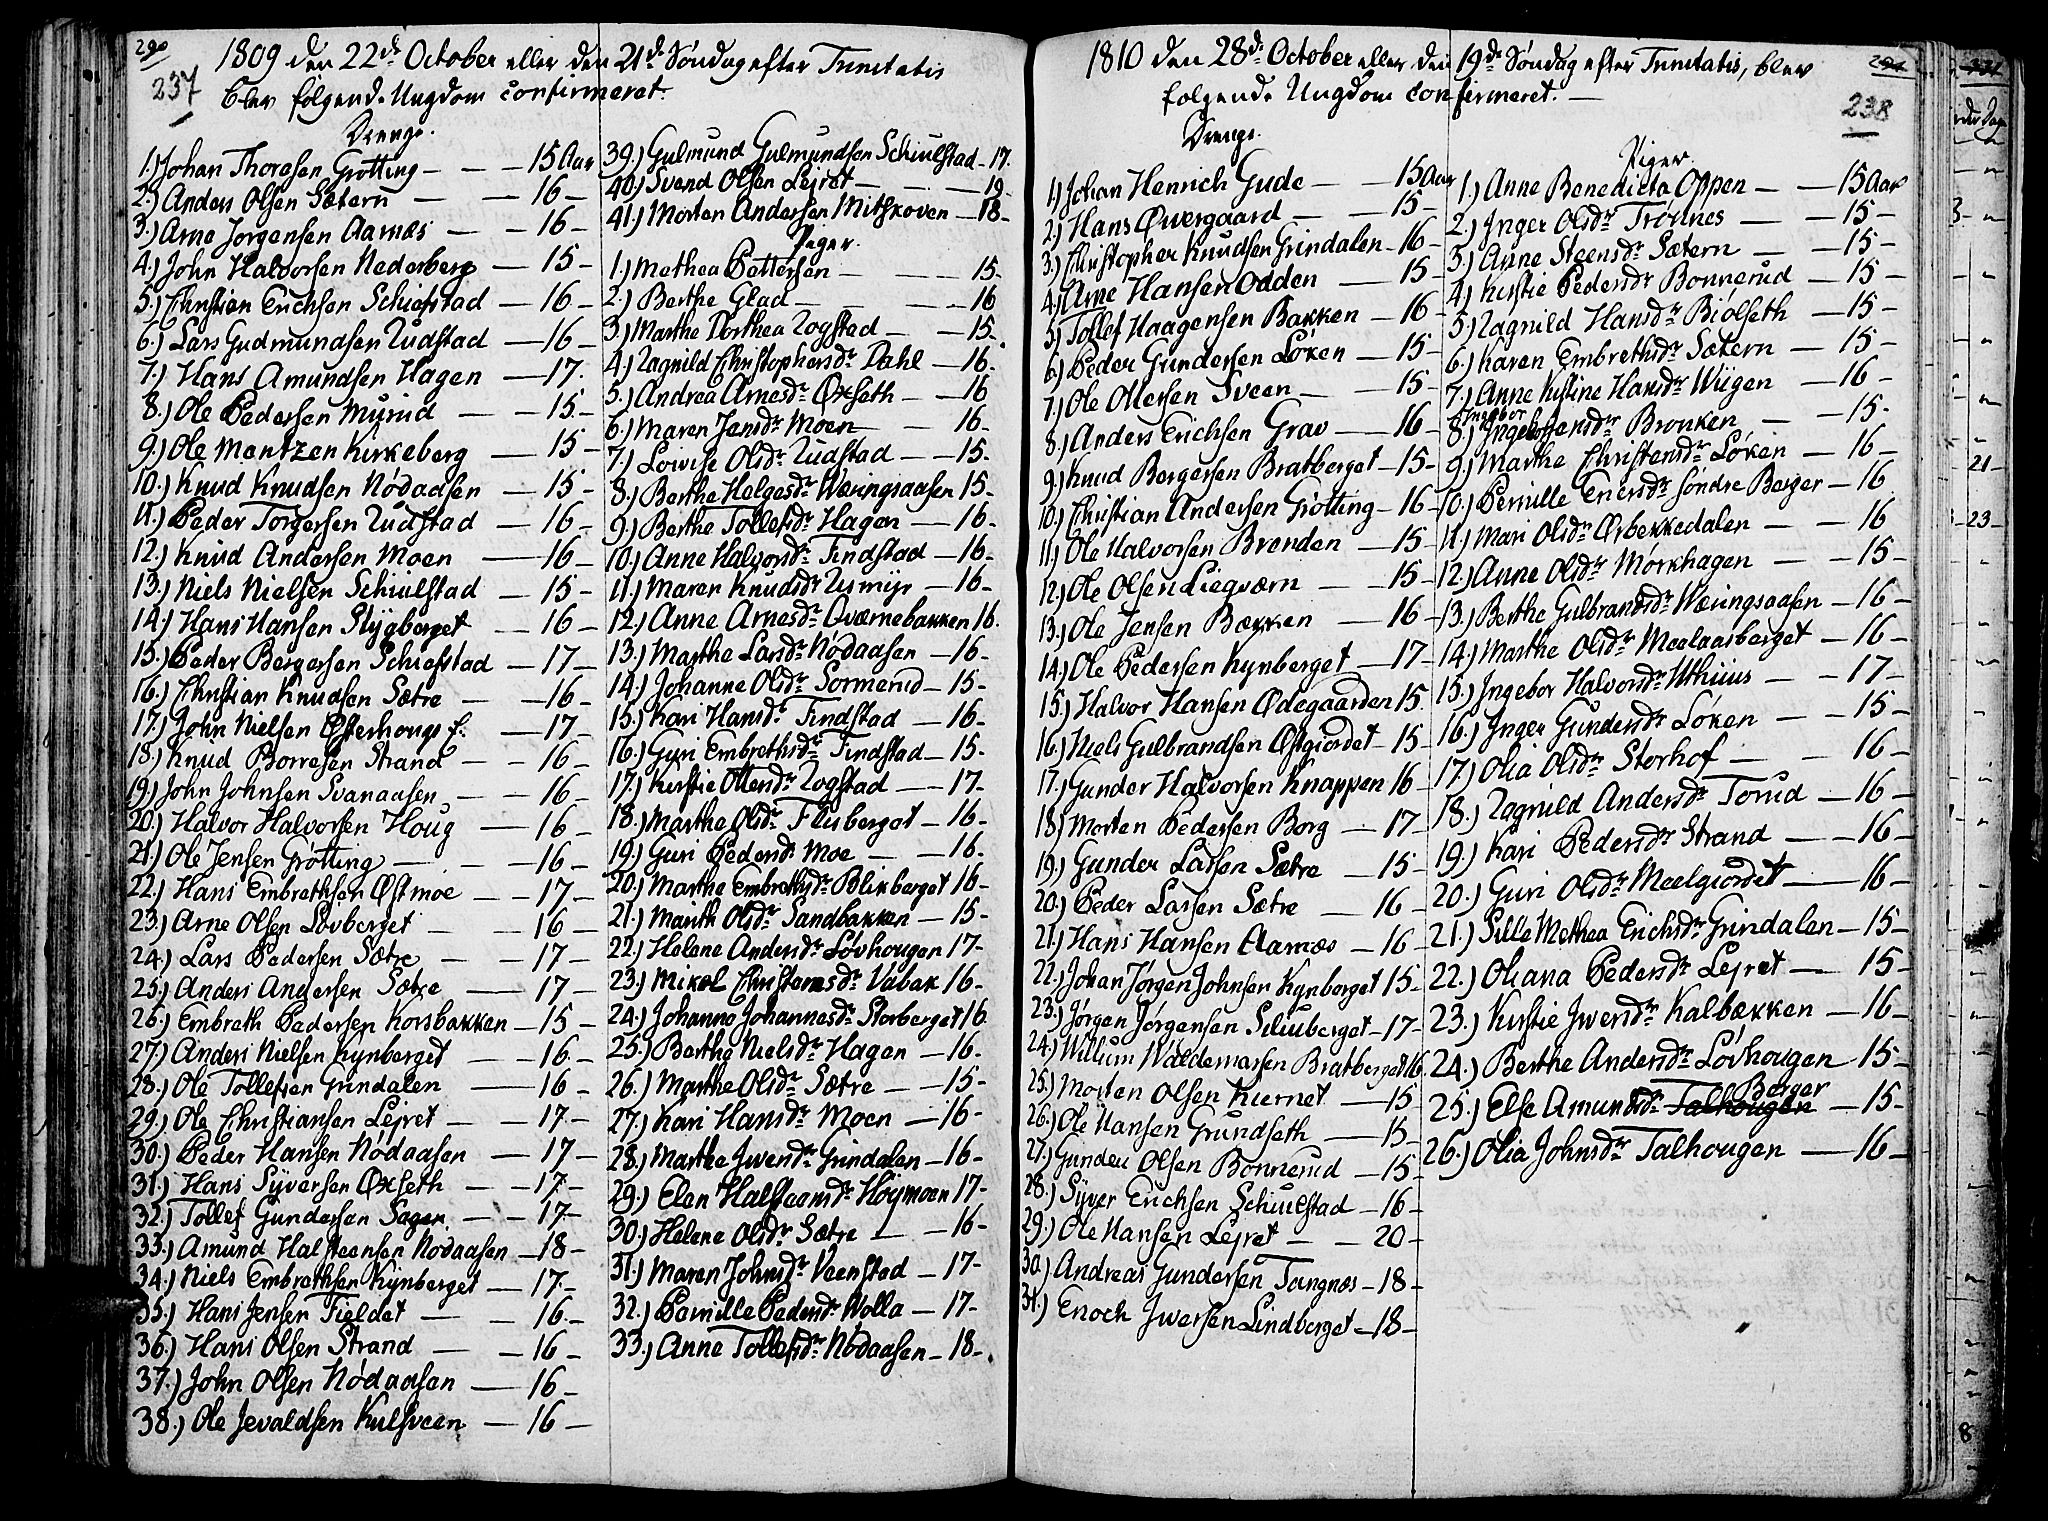 290
237
1809 den 22de October eller den 21de Søndag efter Trinitatis
blev følgende Ungdom confirmeret.
Drenge.
1.) Johan Thoresen Grøtting — — 15 Aar
2.) Anders Olsen Sætern — — 16 —
3.) Arne Jørgensen Aarnæs — — 16 —
4.) John Halvorsen Nederberg — 15 —
5.) Christian Erichsen Schiefstad — 16 —
6.) Lars Gudmundsen Rudstad — 16 —
7.) Hans Amundsen Hagen — 17.
8.) Ole Pedersen Murud — — 15 —
9.) Ole Mentzen Kirkeberg — 15 —
10.) Knud Knudsen Nødaasen — 15 —
11.) Peder Torgersen Rudstad — 16 —
12.) Knud Andersen Moen — 16 —
13.) Niels Nielsen Schiulstad — 15 —
14.) Hans Hansen Stygberget — 16 —
15.) Peder Bergersen Schiefstad — 17 —
16.) Christian Knudsen Sætre — — 16 —
17.) John Nielsen Østerhougs f. — 17 —
18.) Knud Borresen Strand — — 16 —
19.) John Johnsen Svanaasen — — 16 —
20.) Halvor Halvorsen Houg — 16 —
21.) Ole Jensen Grøtting — — 16 —
22.) Hans Embrethsen Østmoe — 17 —
23.) Arne Olsen Løvberget — 16 —
24.) Lars Pedersen Sætre — — 17 —
25.) Anders Andersen Sætre — 17 —
26.) Embreth Pedersen Korsbakken — 15 —
27.) Anders Nielsen Kynberget — — 16 —
28.) Ole Tollefsen Grindalen — 16 —
29.) Ole Christiansen Lejret — — 17 —
30.) Peder Hansen Nødaasen — 17 —
31.) Hans Syversen Øxseth — — 17 —
32.) Tollef Gundersen Sagen — — 17 —
33.) Amund Halsteensen Nødaasen — 18 —
34.) Niels Embrethsen Kynberget — 17 —
35.) Hans Jensen Fieldet — — 16 —
36.) Hans Olsen Strand — — 16 —
37.) John Olsen Nødaasen — 16 —
38.) Ole Jevaldsen Kulsveen — 16 —
39.) Gulmund Gulmundsen Schiulstad — 17.
40.) Svend Olsen Lejret — — — 19 —
41.) Morten Andersen Mitskoven — 18 —
Piger.
1.) Mathea Pettersen — — — 15 —
2.) Berthe Glad — — — 16
3.) Marthe Dorthea Rogstad — — 15 —
4.) Ragnild Christophersdr Dahl — 16 —
5.) Andrea Arnesdr Øxseth — — 16
6.) Maren Jensdr Moen — — 16 —
7.) Lowise Olsdr Rudstad — — 15 —
8.) Berthe Helgesdr Væringsaasen 15 —
9.) Berthe Tollefsdr Hagen — 16 —
10.) Anne Halvorsdr Tindstad — 16 —
11.) Maren Knudsdr Rismyr — 16 —
12.) Anne Arnesdr Qværnebakken 16.
13.) Marthe Larsdr Nødaasen — 16 —
14.) Johanne Olsdr Sormerud — 15 —
15.) Kari Hansdr Tindstad — 16 —
16.) Guri Embrethsdr Tindstad — 15 —
17.) Kirstie Ottersdr Rogstad — 17 —
18.) Marthe Olsdr Flisberget — 16 —
19.) Guri Pedersdr Moe — — 16 —
20.) Marthe Embrethsdr Blikberget 16 —
21.) Marith Olsdr Sandbakken — 15 —
22.) Helene Andersdr Løvhougen 17 —
23.) Mikel Christensdr Vabak 16 —
24.) Johanne Johannesdr Storberget 16
25.) Berthe Nielsdr Hagen — 16 —
26.) Marthe Olsdr Sætre — — 15 —
27.) Kari Hansdr Moen — 16 —
28.) Marthe Iversdr Grindalen — 16 —
29.) Elen Halsteensdr Høymoen 17 —
30.) Helene Olsdr Sætre — — 16 —
31.) Maren Johnsdr Veenstad — 17 —
32.) Pernille Pedersdr Wolla — 17 —
33.) Anne Tollefsdr Nødaasen — 18 —
1810 den 28de October eller den 19de Søndag efter Trinitatis, blev
følgende Ungdom confirmeret. —
291
238
Drenge.
1.) Johan Henrich Gude — — 15 Aar
2.) Hans Øvergaard — — 15 —
3.) Christopher Knudsen Grindalen — 16 —
4.) Arne Hansen Odden — 15 —
5.) Tollef Haagensen Bakken — 16 —
6.) Peder Gundersen Løken — 15 —
7.) Ole Ottersen Sveen — — 15 —
8.) Anders Erichsen Grav — 16 —
9.) Knud Bergersen Bratberget — 15 —
10.) Christian Andersen Grøtting — 16 —
11.) Ole Halvorsen Brenden — 15 —
12.) Ole Olsen Liegværn — 15 —
13.) Ole Jensen Bækken — 16 —
14.) Ole Pedersen Kynberget — 17 —
15.) Halvor Hansen Ødegaarden 15.
16.) Niels Gulbrandsen Østgiordet — 15 —
17.) Gunder Halvorsen Knappen 16 —
18.) Morten Pedersen Borg — 17 —
19.) Gunder Larsen Sætre — 15 —
20.) Peder Larsen Sætre — 16 —
21.) Hans Hansen Aarnæs — 16 —
22.) Johan Jørgen Johnsen Kynberget 15 —
23.) Jørgen Jørgensen Schuberget — 17 —
24.) Willum Waldemarsen Bratberget 16
25.) Morten Olsen Kiernet — 15 —
26.) Ole Hansen Grundseth — 15 —
27.) Gunder Olsen Bonnerud — 15 —
28.) Syver Erichsen Schiulstad — 16 —
29.) Ole Hansen Lejret — — 20 —
30.) Andreas Gundersen Tangnæs — 18 —
31.) Enoch Iversen Lindberget — 18 —
Piger.
1.) Anne Benedicta Oppen — — 15 Aar
2.) Inger Olsdr Trødnes — — 15 —
3.) Anne Steensdr Sætern — — 15 —
4.) Kirstie Pedersdr Bonnerud — 15 —
5.) Ragnild Hansdr Biølseth — 15 —
6.) Karen Embrethsdr Sætern — 15 —
7.) Anne Kirstine Hansdr Wiigen — 16 —
Ingebor
8.) Ingeb Jensdr Bronken — — 15 —
9.) Marthe Christensdr Løken — 16 —
10.) Pernille Enersdr Søndre Berger — 16
11.) Mari Olsdr Ørbekkedalen — — 16
12.) Anne Olsdr Mørkhagen — 15 —
13.) Berthe Gulbrandsdr Væringsaasen — 16 —
14.) Marthe Olsdr Meelaasberget — 16 —
15.) Ingebor Halvorsdr Uthuus — — 17 —
16.) Inger Gundersdr Løken — — 15 —
17.) Olia Olsdr Storhof — — 16 —
18.) Ragnild Andersdr Torud — 16 —
19.) Kari Pedersdr Strand — 16 —
20.) Guri Olsdr Meelgiordet — 16 —
21.) Sille Methea Erichsdr Grindalen — 15 —
22.) Oliana Pedersdr Lejret — 15 —
23.) Kirstie Iversdr Kalbækken — 16 —
24.) Berthe Andersdr Løvhougen 15 —
Berger
25.) Else Amundsdr Talhougen — 15 —
26.) Olia Johnsdr Talhougen — 16 —
21 —
23 —
8